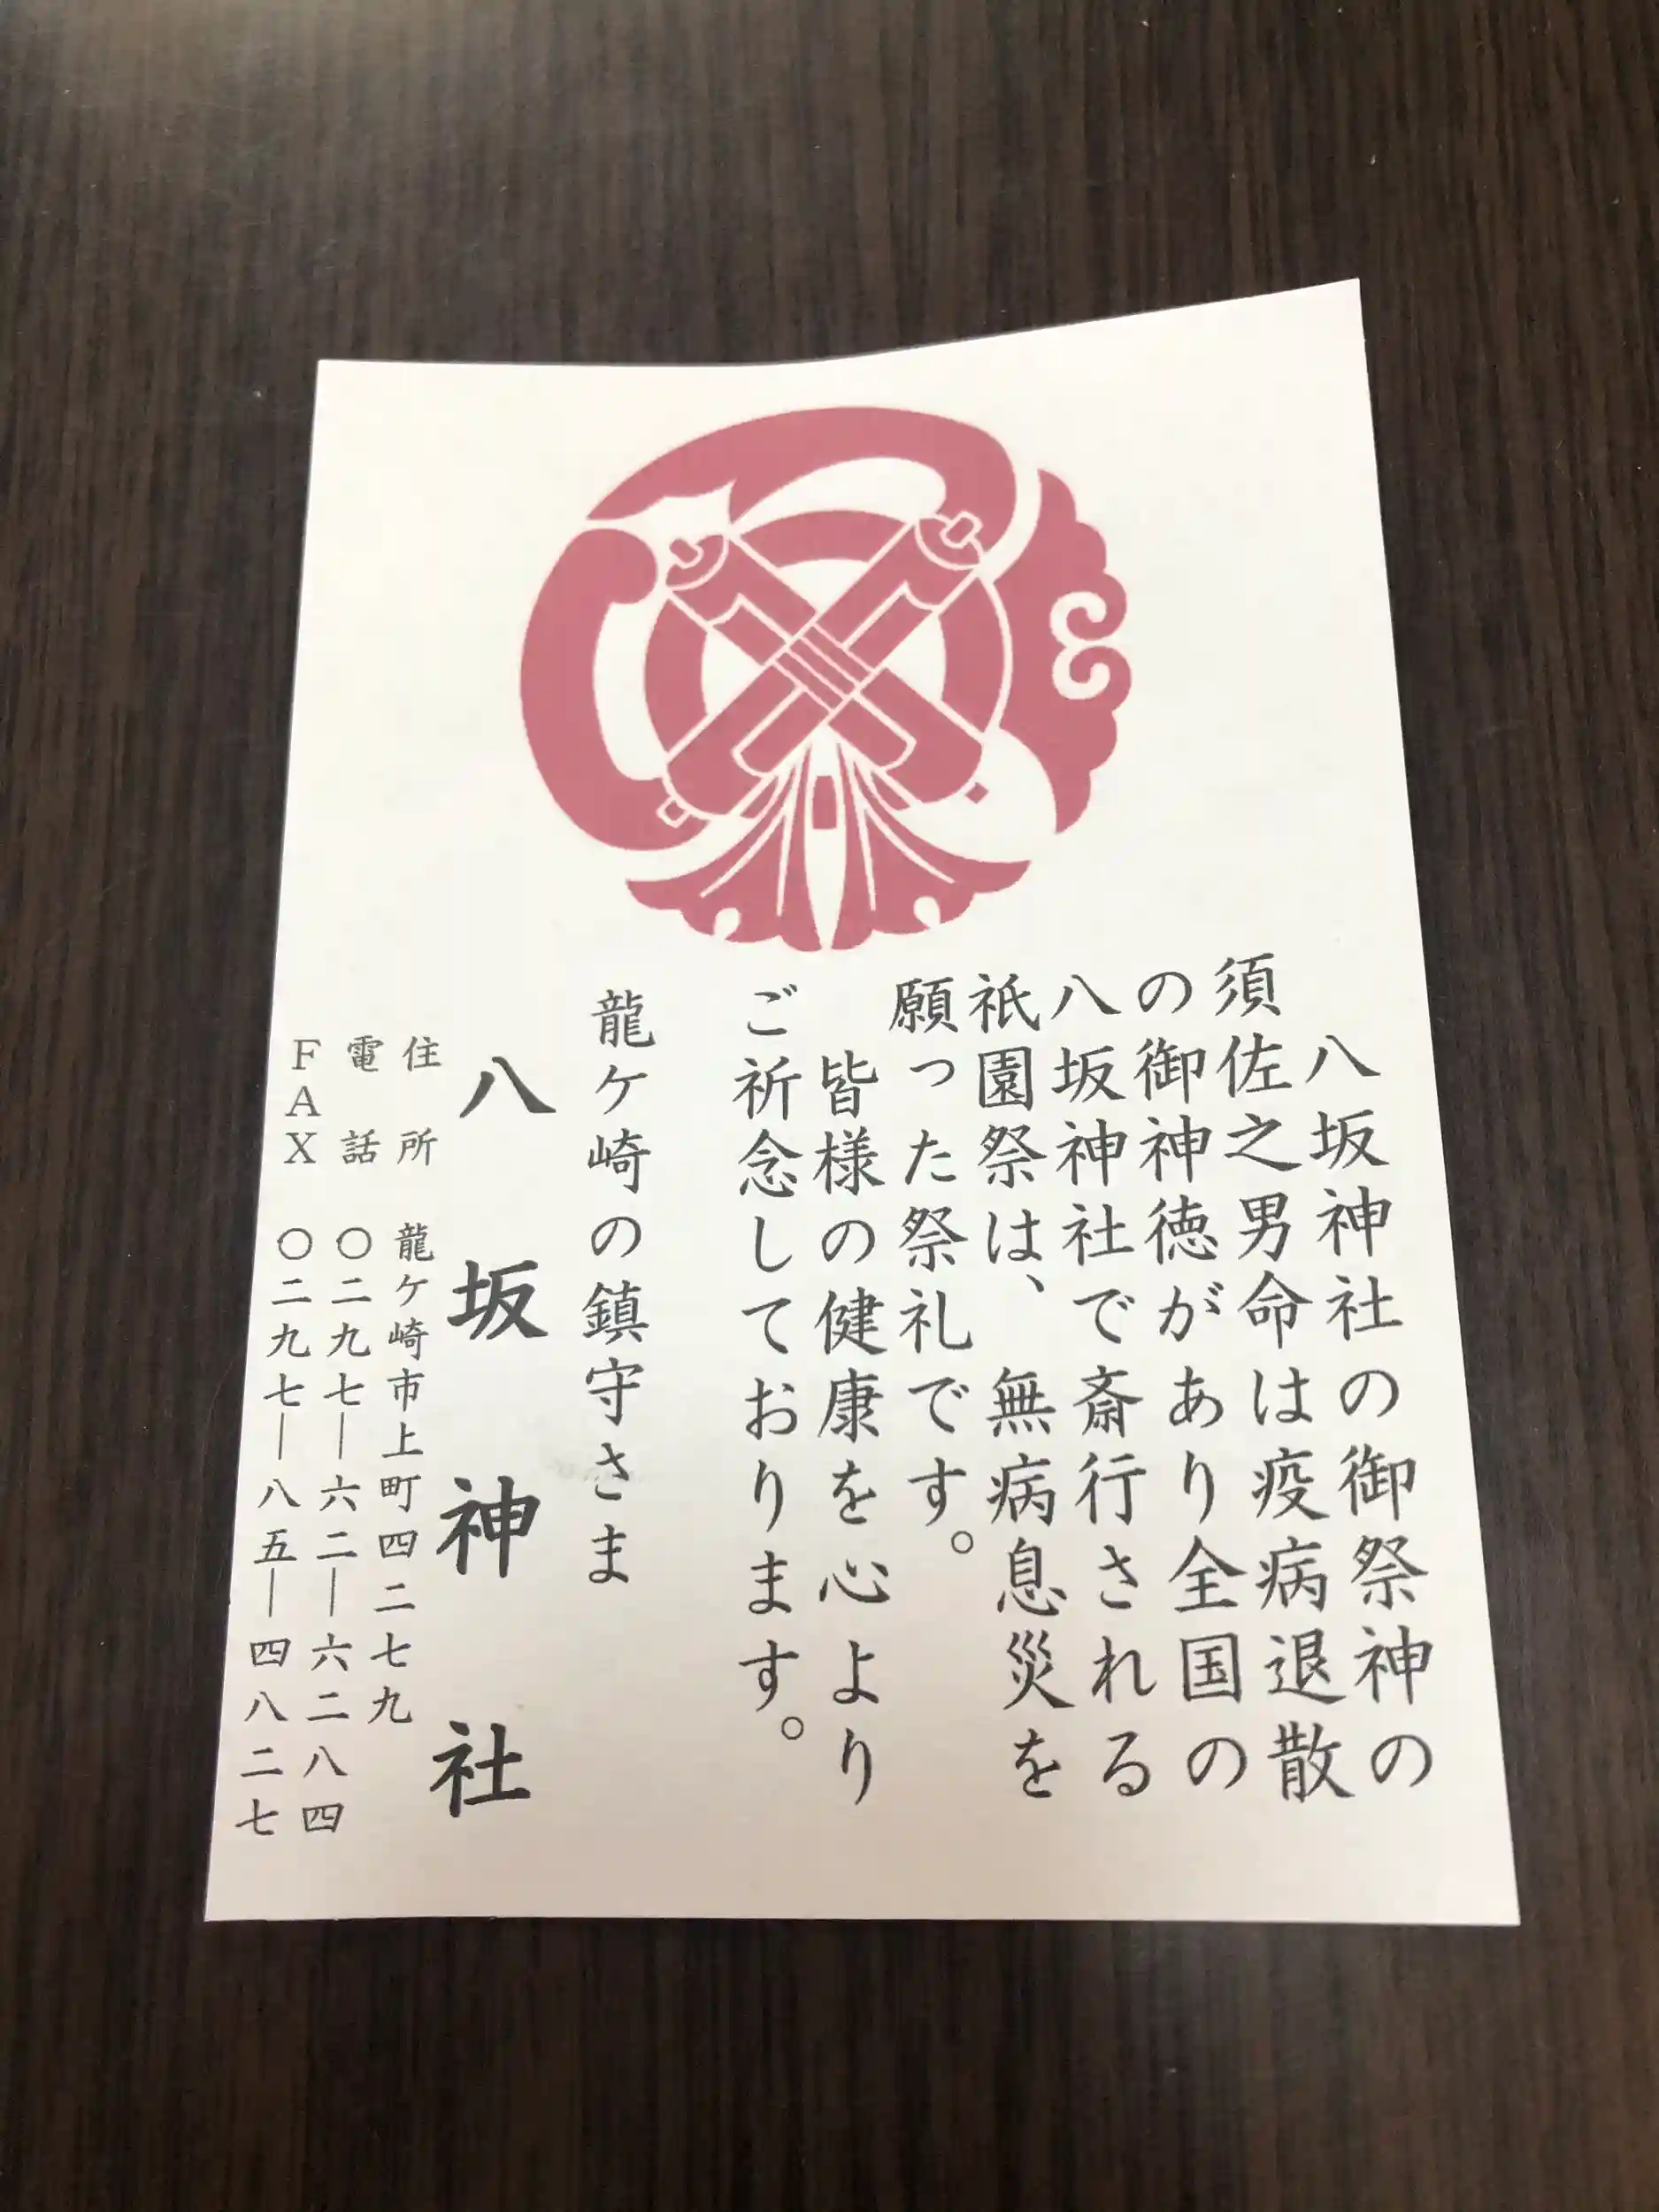 八坂神社の御祭神の
須佐之男命は疫病退散
の御神徳があり全国の
八坂神社で斎行される
祇園祭は、無病息災を
願った祭礼です。
皆様の健康を心より
ご祈念しております。
龍ケ崎の鎮守さま
八坂神社
住所 龍ケ崎市上町四二七九
電話 〇二九七―六二―六二八四
FAX 〇二九七―八五―四八二七